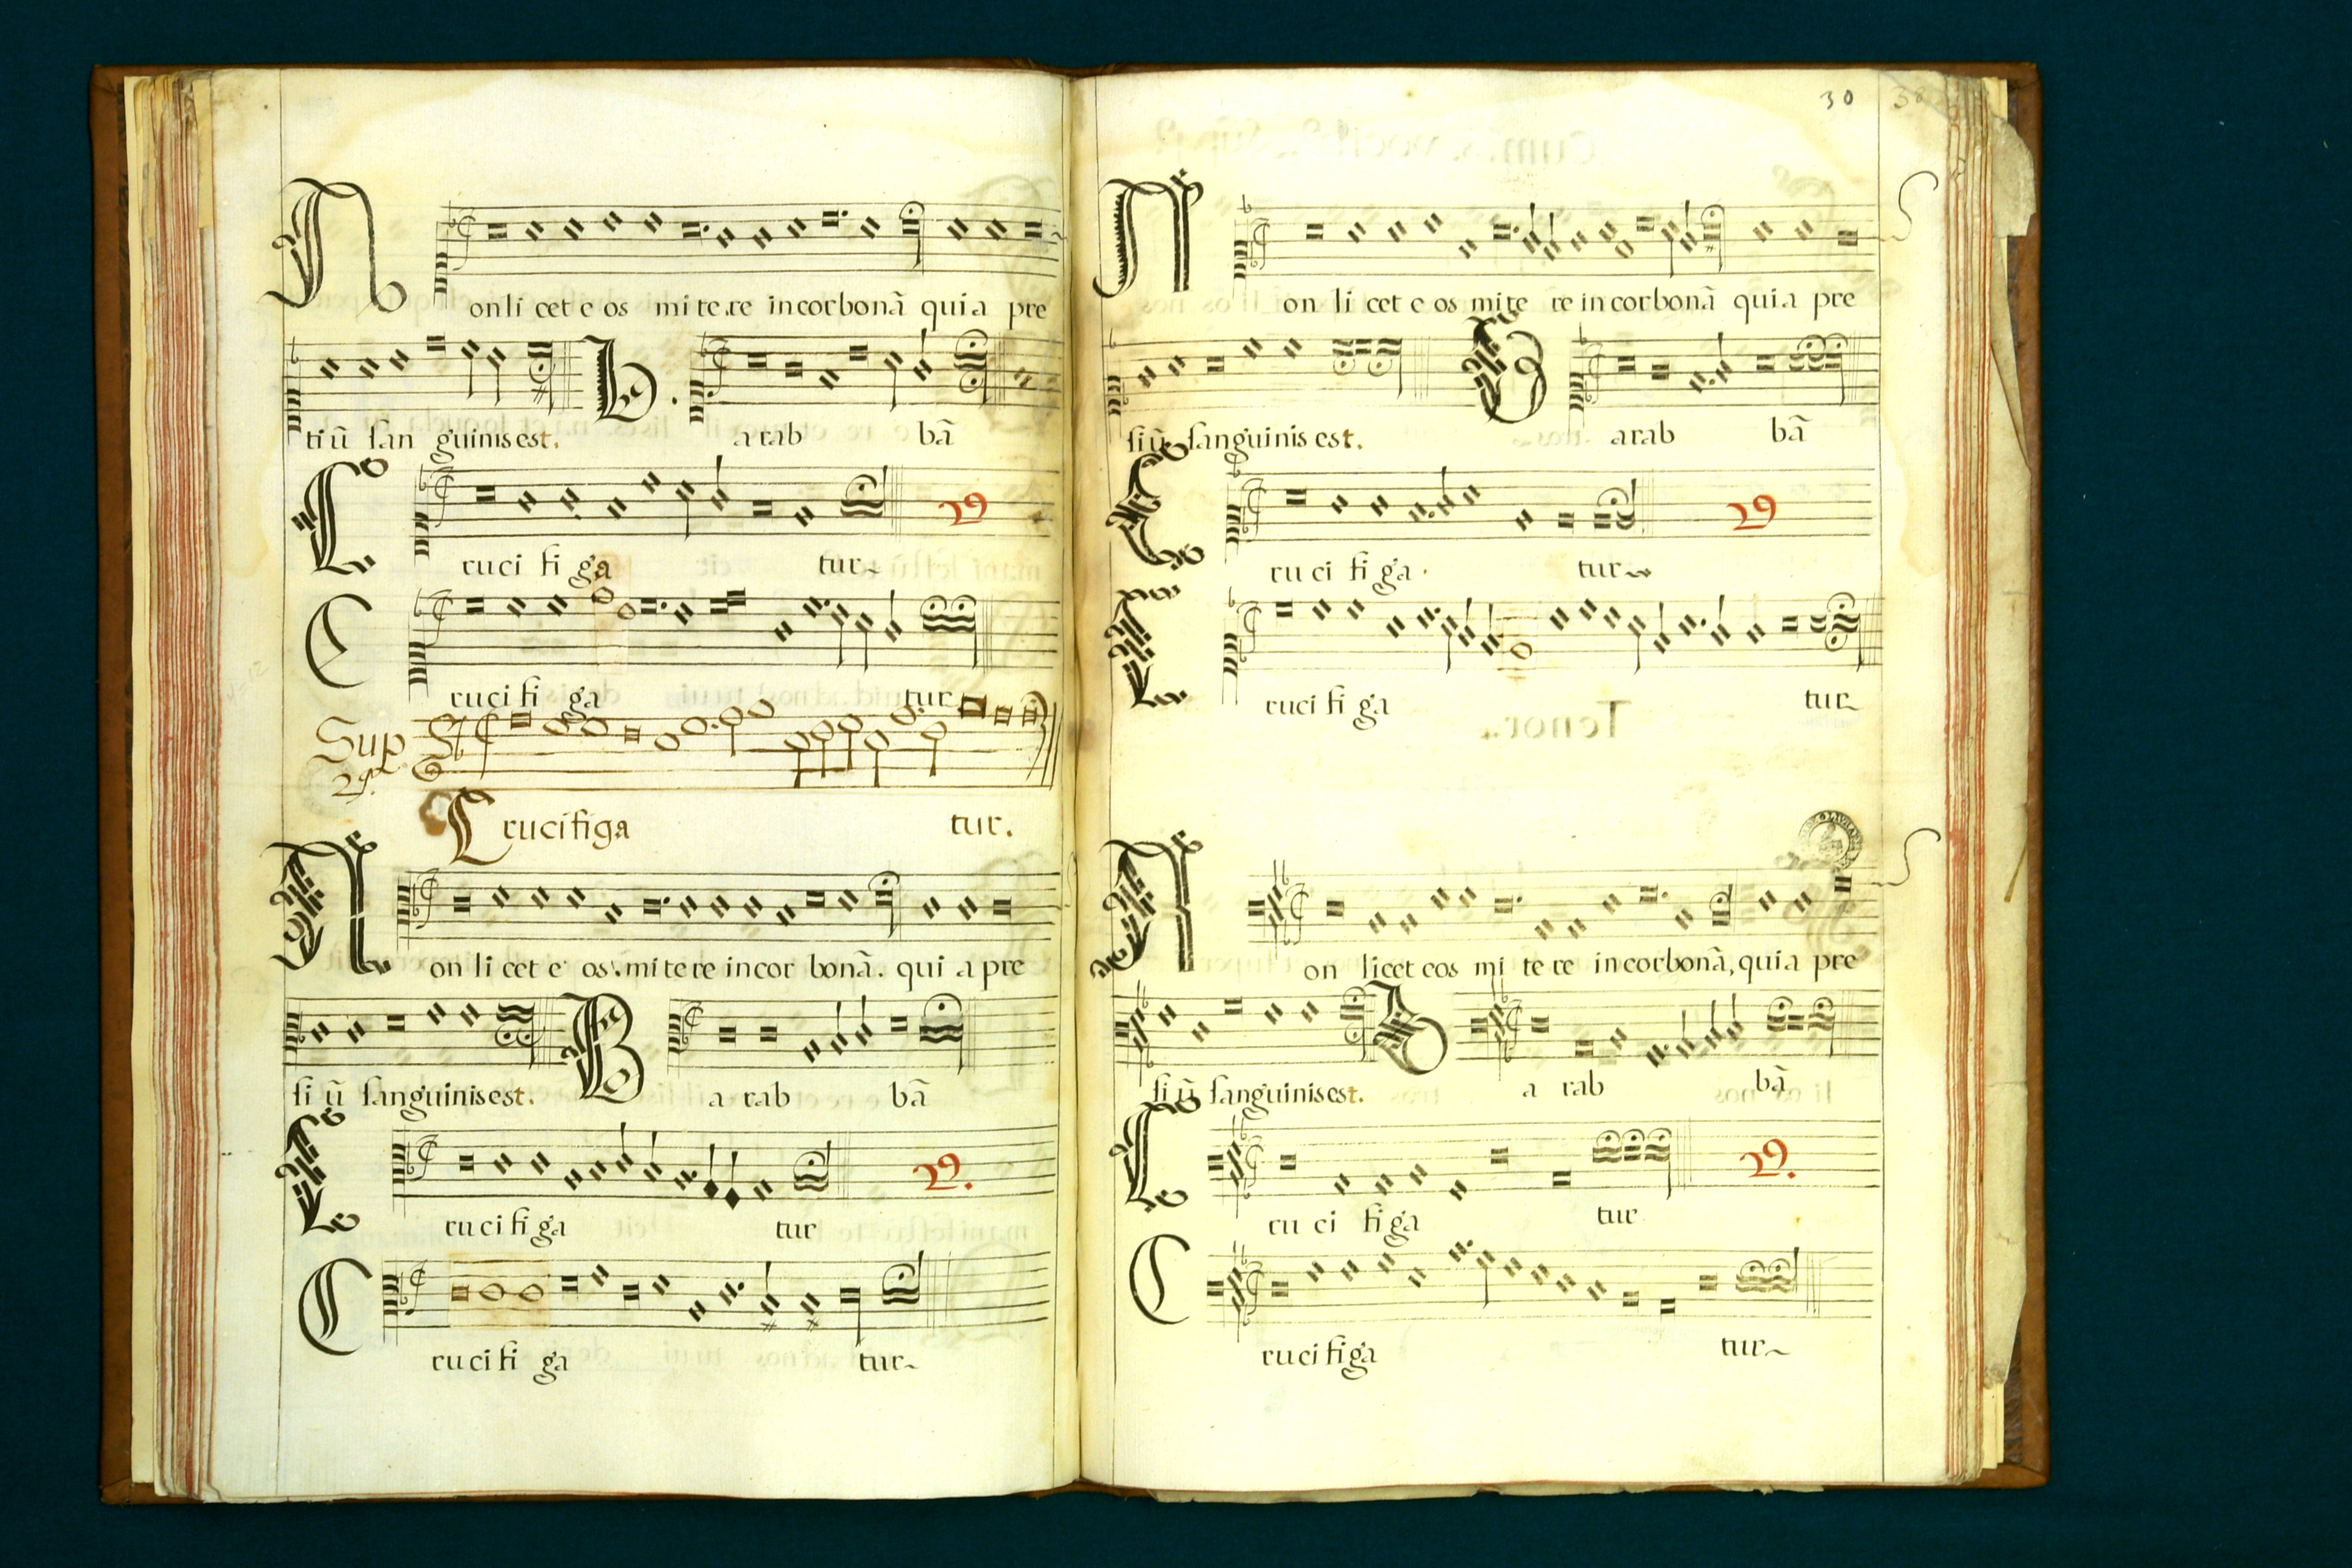 Non li cet e os mi te re in corbonã qui a pre
ti ũ san guinis est. B. a rab bã
Cruci fi ga tur 29
Cruci fi ga tur
Sup 2ª.
Crucifiga tur.
Non li cet e os mi te re in cor bonã. qui a pre
si ũ sanguinis est. Ba rab bã
Cru ci fi ga tur 29.
Cru ci fi ga tur
30 38
Non li cet e os mi te re in corbonã qui a pre
si ũ sanguinis est. Barab bã
Cru ci fi ga tur 29
Cruci fi ga tur
Non licet eos mi te re in corbonã, qui a pre
si ũ sanguinis est. Ba rab bã
Cru ci fi ga tur 29.
Crucifiga tur